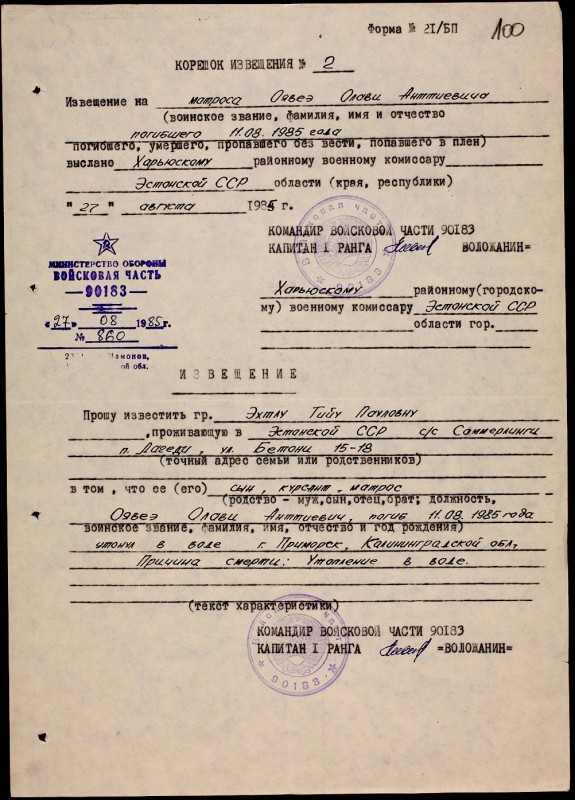 Форма № 2I/БП
100
КОРЕШОК ИЗВЕЩЕНИЯ № 2
Извещение на матроса Оявеэ Олави Анттиевича
(воинское звание, фамилия, имя и отчество
погибшего 11.08.1985 года
погибшего, умершего, пропавшего без вести, попавшего в плен)
выслано Харьюскому районному военному комиссару
Эстонской ССР области (края, республики)
"27" августа 1985 г.
КОМАНДИР ВОЙСКОВОЙ ЧАСТИ 90183
КАПИТАН I РАНГА ВОЛОЖАНИН=
Войсковая часть
90183
МИНИСТЕРСТВО ОБОРОНЫ
ВОЙСКОВАЯ ЧАСТЬ
—90183—
«27» 08 1985 г.
№ 860
обл.
Харьюскому районному(городско-
му) военному комиссару Эстонской ССР
области гор.
ИЗВЕЩЕНИЕ
Прошу известить гр. Эхтлу Тийу Пауловну
,проживающую в Эстонской ССР с/с Соммерлинги
п. Лагеди, ул. Бетони 15-18
(точный адрес семьи или родственников)
в том, что ее (его) сын, курсант, матрос
(родство - муж,сын,отец,брат; должность,
Оявеэ Олави Анттиевич, погиб 11.08.1985 года
воинское звание, фамилия, имя, отчество и год рождения)
утонул в воде г. Приморск, Калининградской обл,
Причина смерти: Утопление в воде.
(текст характеристики)
КОМАНДИР ВОЙСКОВОЙ ЧАСТИ 90183
КАПИТАН I РАНГА =ВОЛОЖАНИН=
Войсковая часть
90183